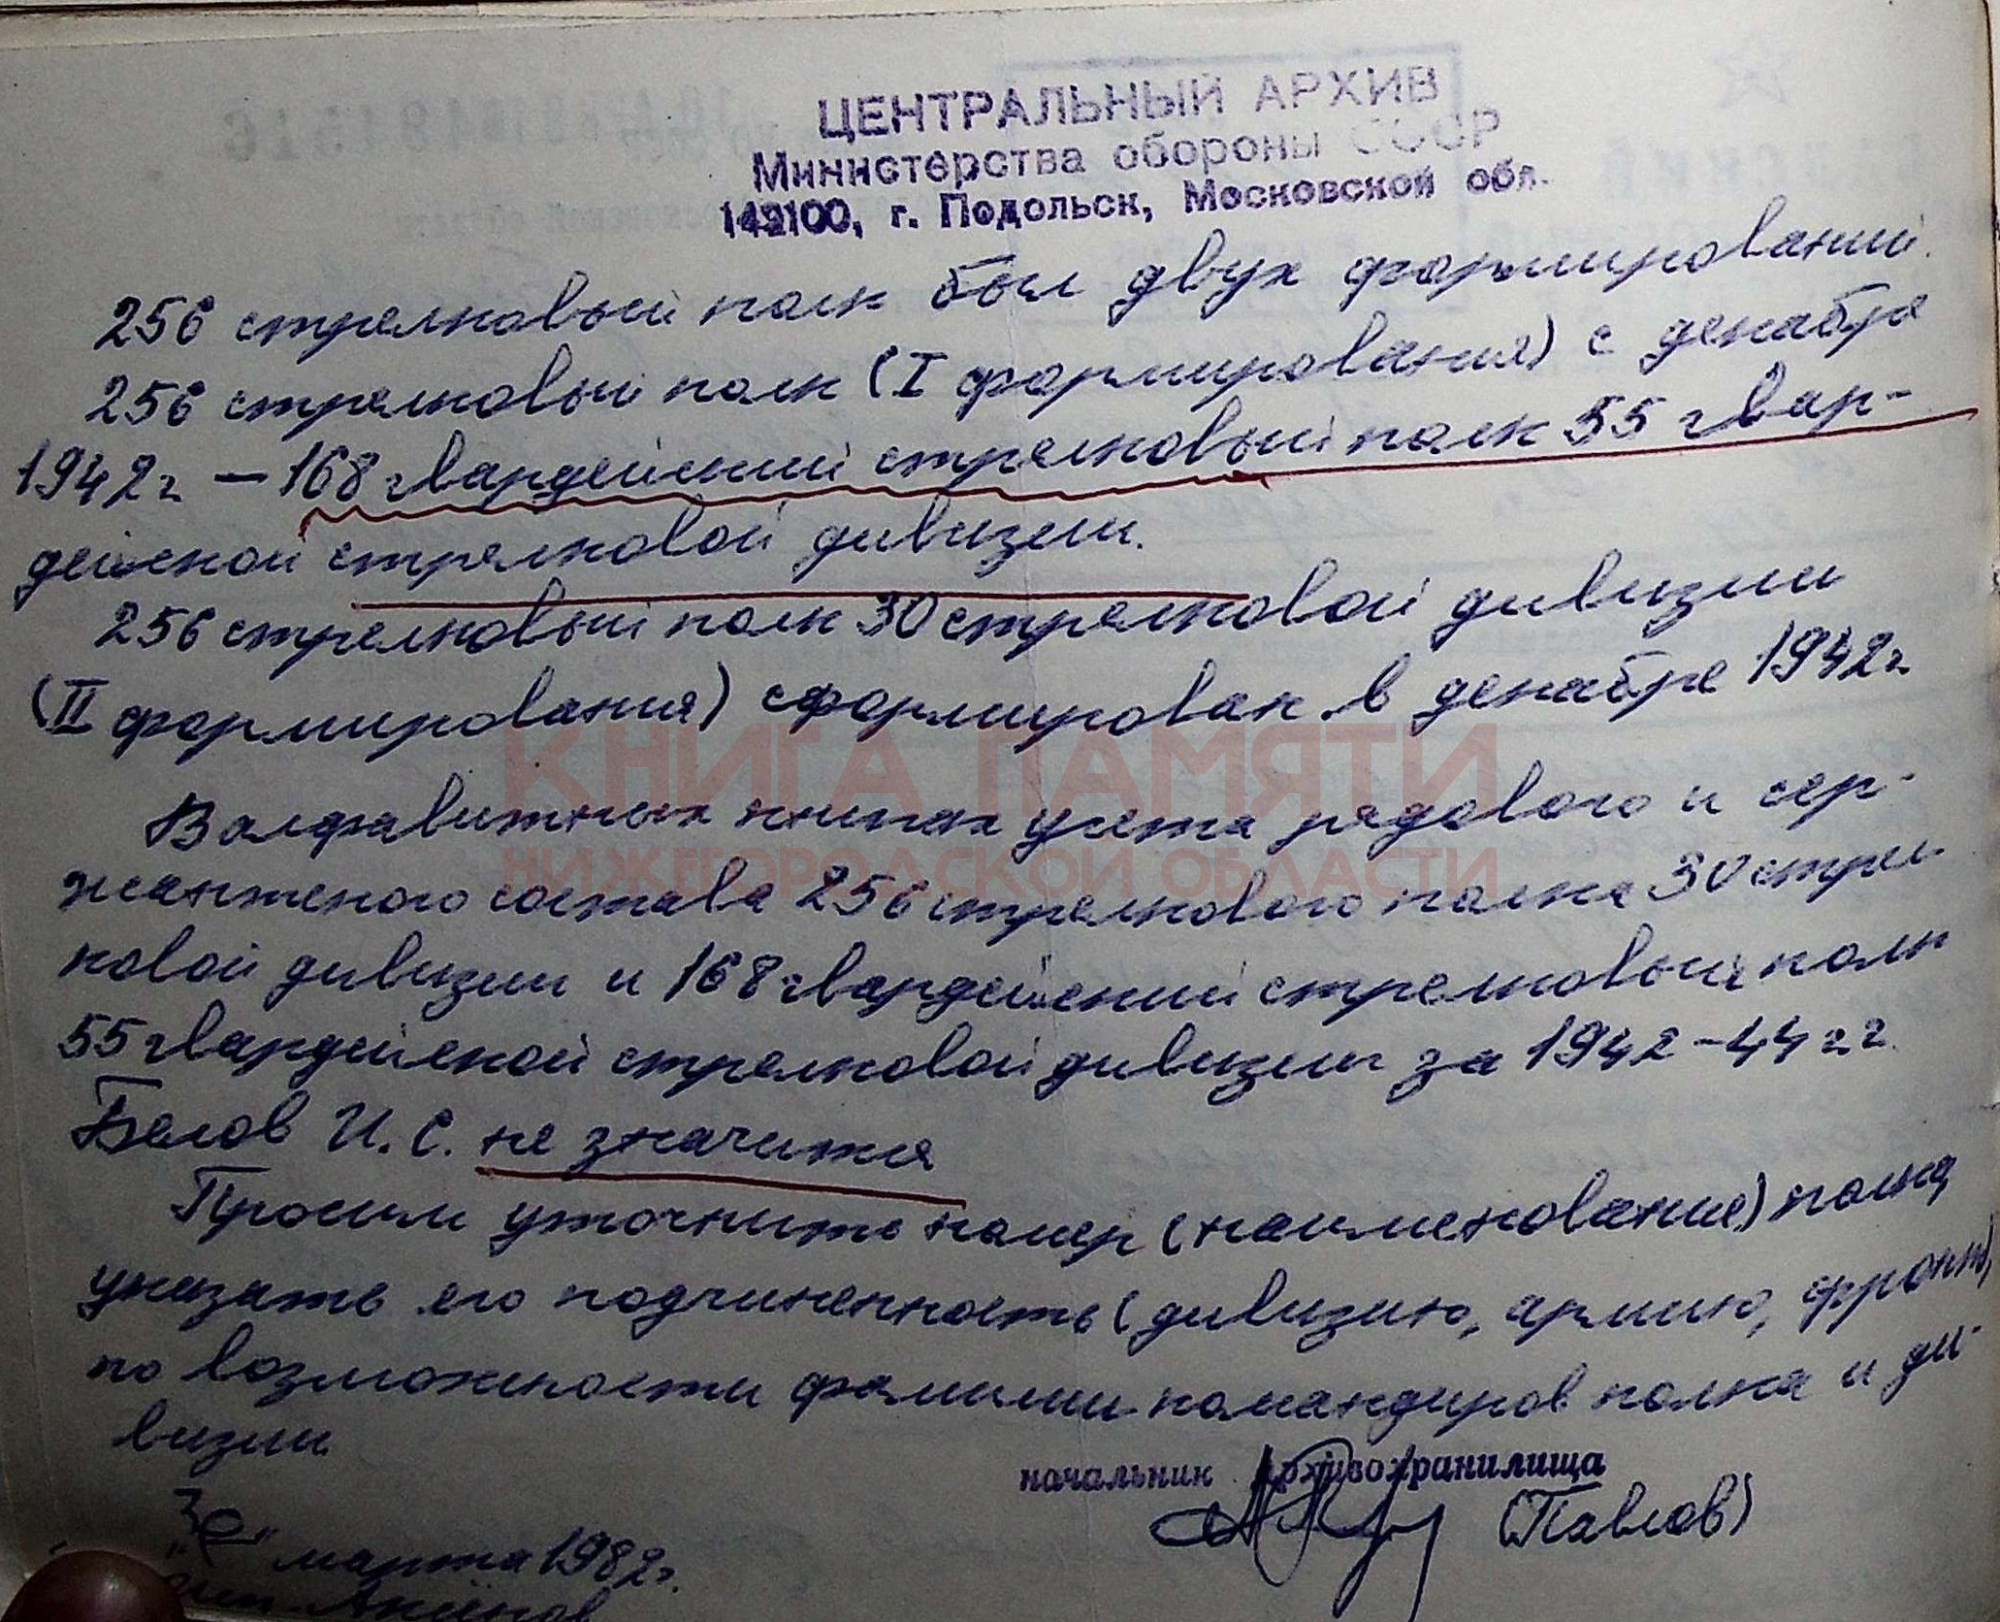 ЦЕНТРАЛЬНЫЙ АРХИВ
Министерства обороны СССР
142100, г. Подольск, Московской обл.
256 стрелковый полк был двух формирований.
256 стрелковый полк (I формирования) с декабря
1942 г. – 168 гвардейский стрелковый полк 55 гвар-
дейской стрелковой дивизии.
256 стрелковый полк 30 стрелковой дивизии
(II формирования) сформирован в декабре 1942 г.
КНИГА ПАМЯТИ
НИЖЕГОРОДСКОЙ ОБЛАСТИ
В алфавитных книгах учета рядового и сер-
жантского состава 256 стрелкового полка 30 стрел-
ковой дивизии и 168 гвардейский стрелковый полк
55 гвардейской стрелковой дивизии за 1942-44 гг.
Белов И. С. не значится
Просим уточнить номер (наименование) полка,
указать его подчиненность (дивизию, армию, фронт),
по возможности фамилии командиров полка и ди-
визии
начальник архивохранилища
(Павлов)
марта 1982 г.